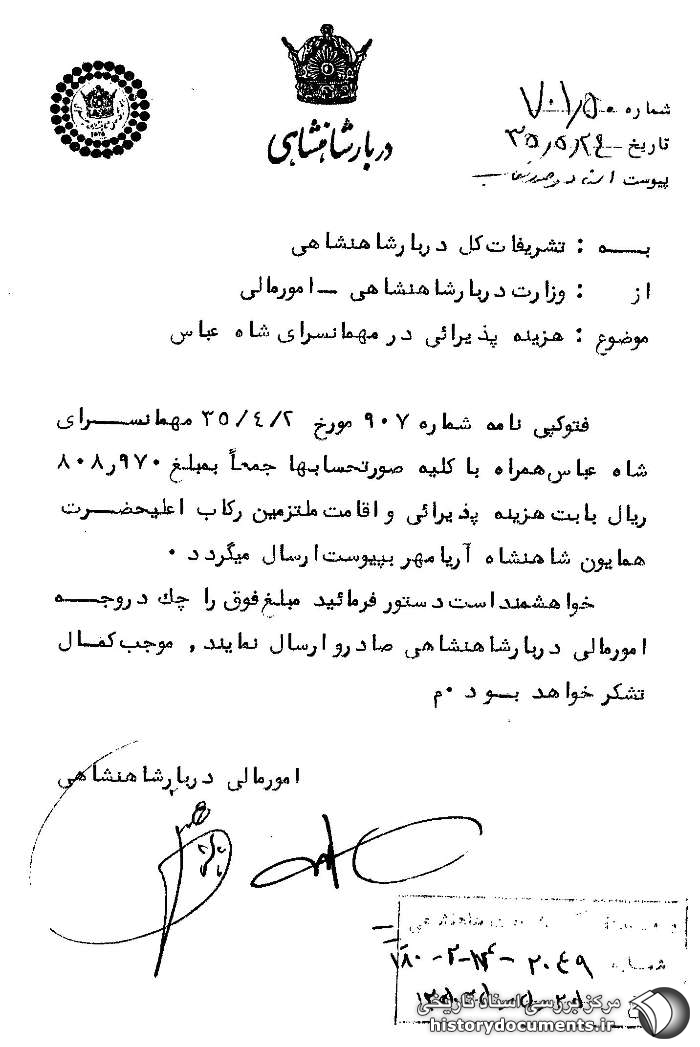 دربار شاهنشاهی
شماره ۷۰۱/۵۰
تاریخ ۳۵٫۵٫۲۴
پیوست
به : تشریفات کل دربارشاهنشاهی
از : وزارت دربارشاهنشاهی - امورمالی
موضوع : هزینه پذیرائی در مهمانسرای شاه عباس
فتوکپی نامه شماره ۹۰۷ مورخ ۳۵/۴/۲ مهمانسرای
شاه عباس همراه با کلیه صورتحسابها جمعاً بمبلغ ۸۰۸٫۹۷۰
ریال بابت هزینه پذیرائی و اقامت ملتزمین رکاب اعلیحضرت
همایون شاهنشاه آریامهر بپیوست ارسال میگردد ۰
خواهشمند است دستور فرمائید مبلغ فوق را چك دروجه
امورمالی دربارشاهنشاهی صادر و ارسال نمایند , موجب کمال
تشکر خواهد بود ۰م
امورمالی دربارشاهنشاهی
شماره ۲۰۴۹
مرکز بررسی اسناد تاریخی
historydocuments.ir